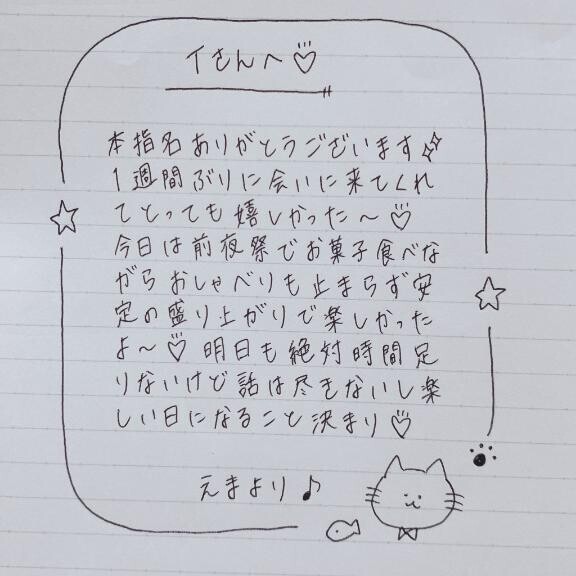 Tさんへ♡
本指名ありがとうございます✨
1週間ぶりに会いに来てくれ
てとっても嬉しかった〜♡
今日は前夜祭でお菓子食べな
がらおしゃべりも止まらず安
定の盛り上がりで楽しかった
よ〜♡ 明日も絶対時間足
りないけど話は尽きないし楽
しい日になること決まり♡
えまより♪